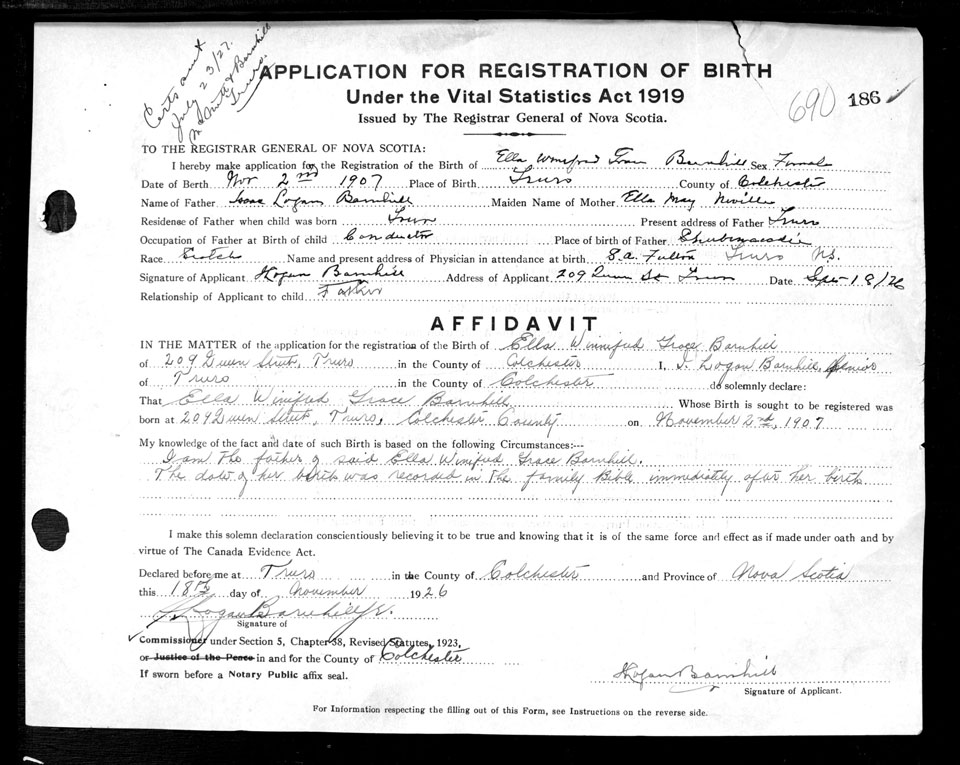 Certs sent
July 23/27.
Barnhill
Truro.
APPLICATION FOR REGISTRATION OF BIRTH
Under the Vital Statistics Act 1919
Issued by The Registrar General of Nova Scotia.
690 186
TO THE REGISTRAR GENERAL OF NOVA SCOTIA:
I hereby make application for the Registration of the Birth of Ella Winifred Grace Barnhill Sex Female
Date of Berth Nov 2nd 1907 Place of Birth Truro County of Colchester
Name of Father Isaac Logan Barnhill Maiden Name of Mother Ella May Neville
Residence of Father when child was born Truro Present address of Father Truro
Occupation of Father at Birth of child Conductor Place of birth of Father Shubenacadie
Race Scotch Name and present address of Physician in attendance at birth S.A. Fulton Truro N.S.
Signature of Applicant Logan Barnhill Address of Applicant 209 Queen St Truro Date 18/26
Relationship of Applicant to child Father
AFFIDAVIT
IN THE MATTER of the application for the registration of the Birth of Ella Winnifred Grace Barnhill
of 209 Queen Street, Truro in the County of Colchester I, I. Logan Barnhill, Senior
of Truro in the County of Colchester do solemnly declare:
That Ella Winifred Grace Barnhill Whose Birth is sought to be registered was
born at 209 Queen Street, Truro, Colchester County on November 2nd, 1907
My knowledge of the fact and date of such Birth is based on the following Circumstances:--
I am the father of said Ella Winifred Grace Barnhill.
The date of her birth was recorded in the family Bible immediately after her birth
I make this solemn declaration conscientiously believing it to be true and knowing that it is of the same force and effect as if made under oath and by
virtue of The Canada Evidence Act.
Declared before me at Truro in the County of Colchester and Province of Nova Scotia
this 18th day of November 1926
I. Logan Barnhill Jr.
Signature of
Commissioner under Section 5, Chapter 38, Revised Statutes, 1923,
or Justice of the Peace in and for the County of Colchester
If sworn before a Notary Public affix seal.
Logan Barnhill
Signature of Applicant.
For Information respecting the filling out of this Form, see Instructions on the reverse side.